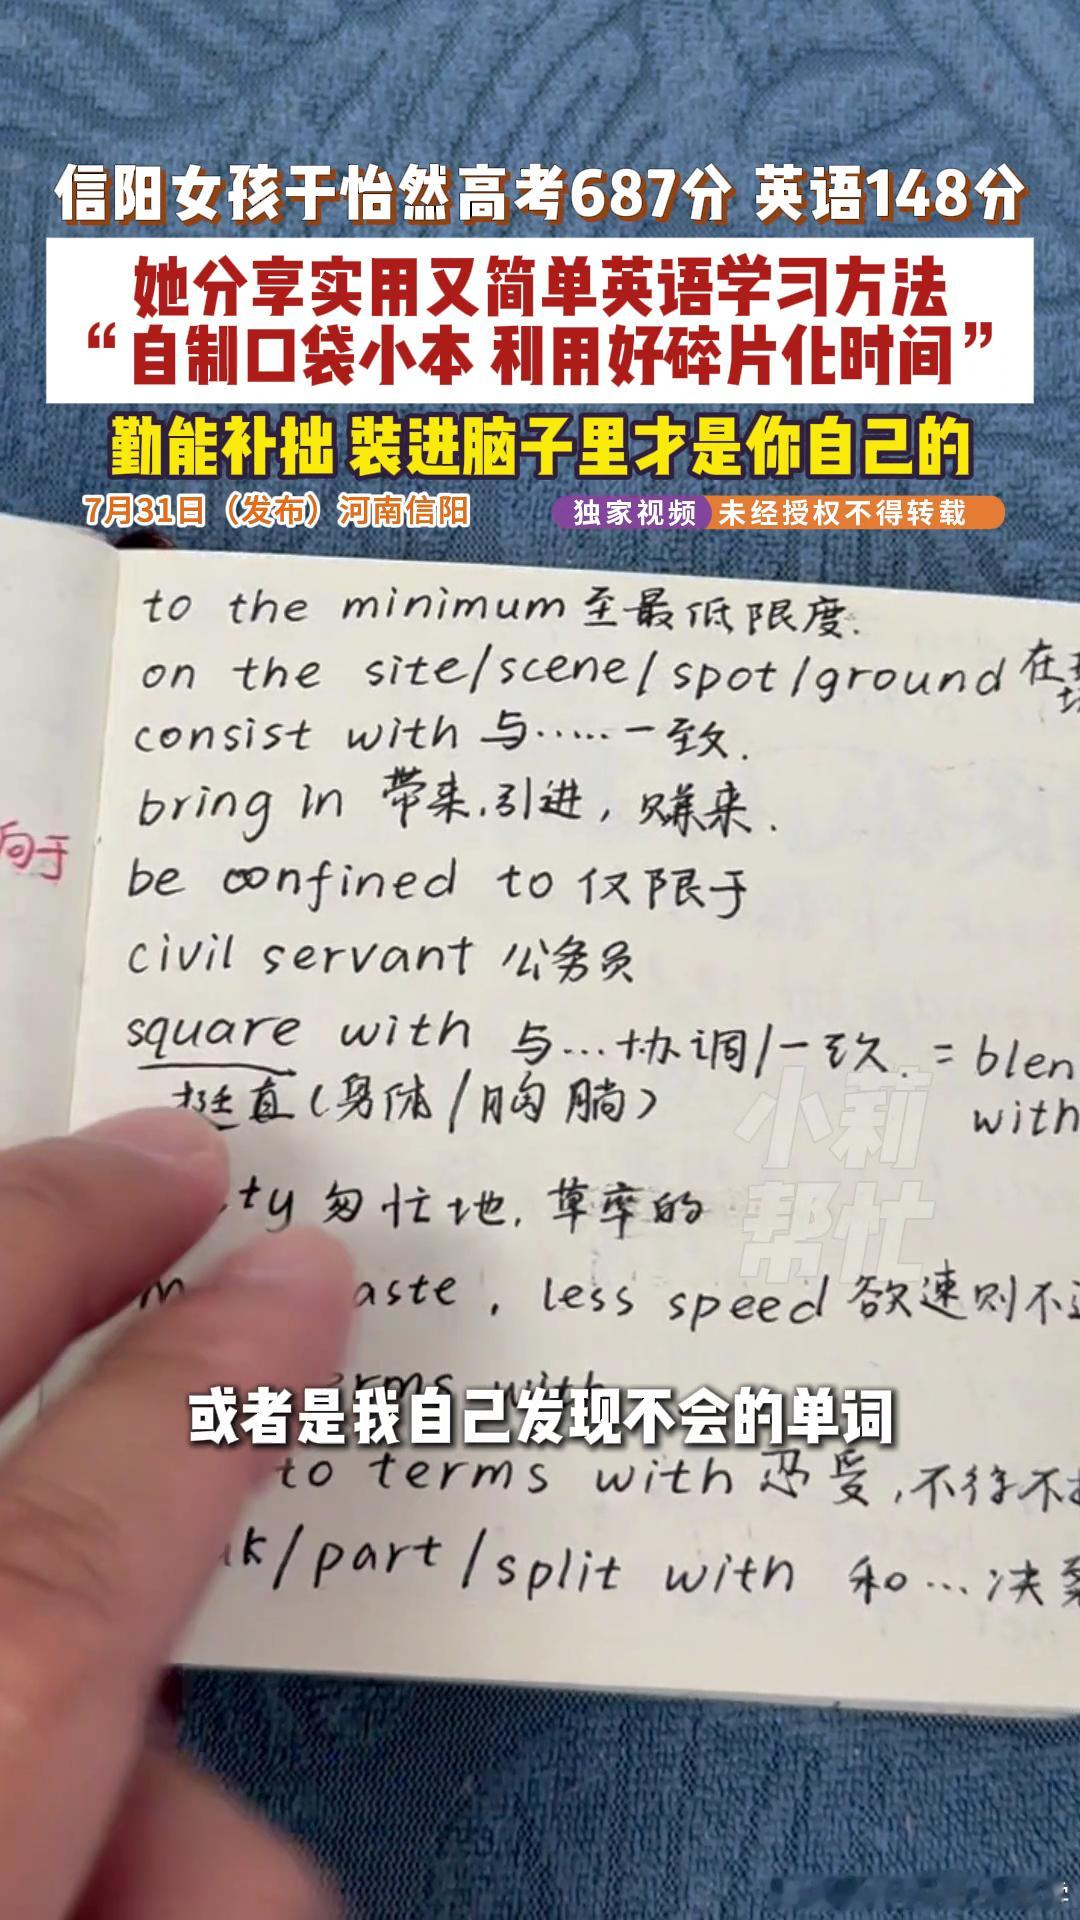 信阳女孩于怡然高考687分 英语148分
她分享实用又简单英语学习方法
“自制口袋小本 利用好碎片化时间”
勤能补拙 装进脑子里才是你自己的
7月31日（发布）河南信阳
独家视频 未经授权不得转载
to the minimum 至最低限度.
on the site/scene/spot/ground 在
consist with 与……一致.
bring in 带来.引进, 赚来.
向于
be confined to 仅限于
civil servant 公务员
square with 与…协调/一致. = blen
挺直(身体/胸膛) with
小莉
帮忙
ty 匆忙地, 草率的
aste, less speed 欲速则不
rms with
或者是我自己发现不会的单词
to terms with 忍受,不得不
k/part/split with 和…决